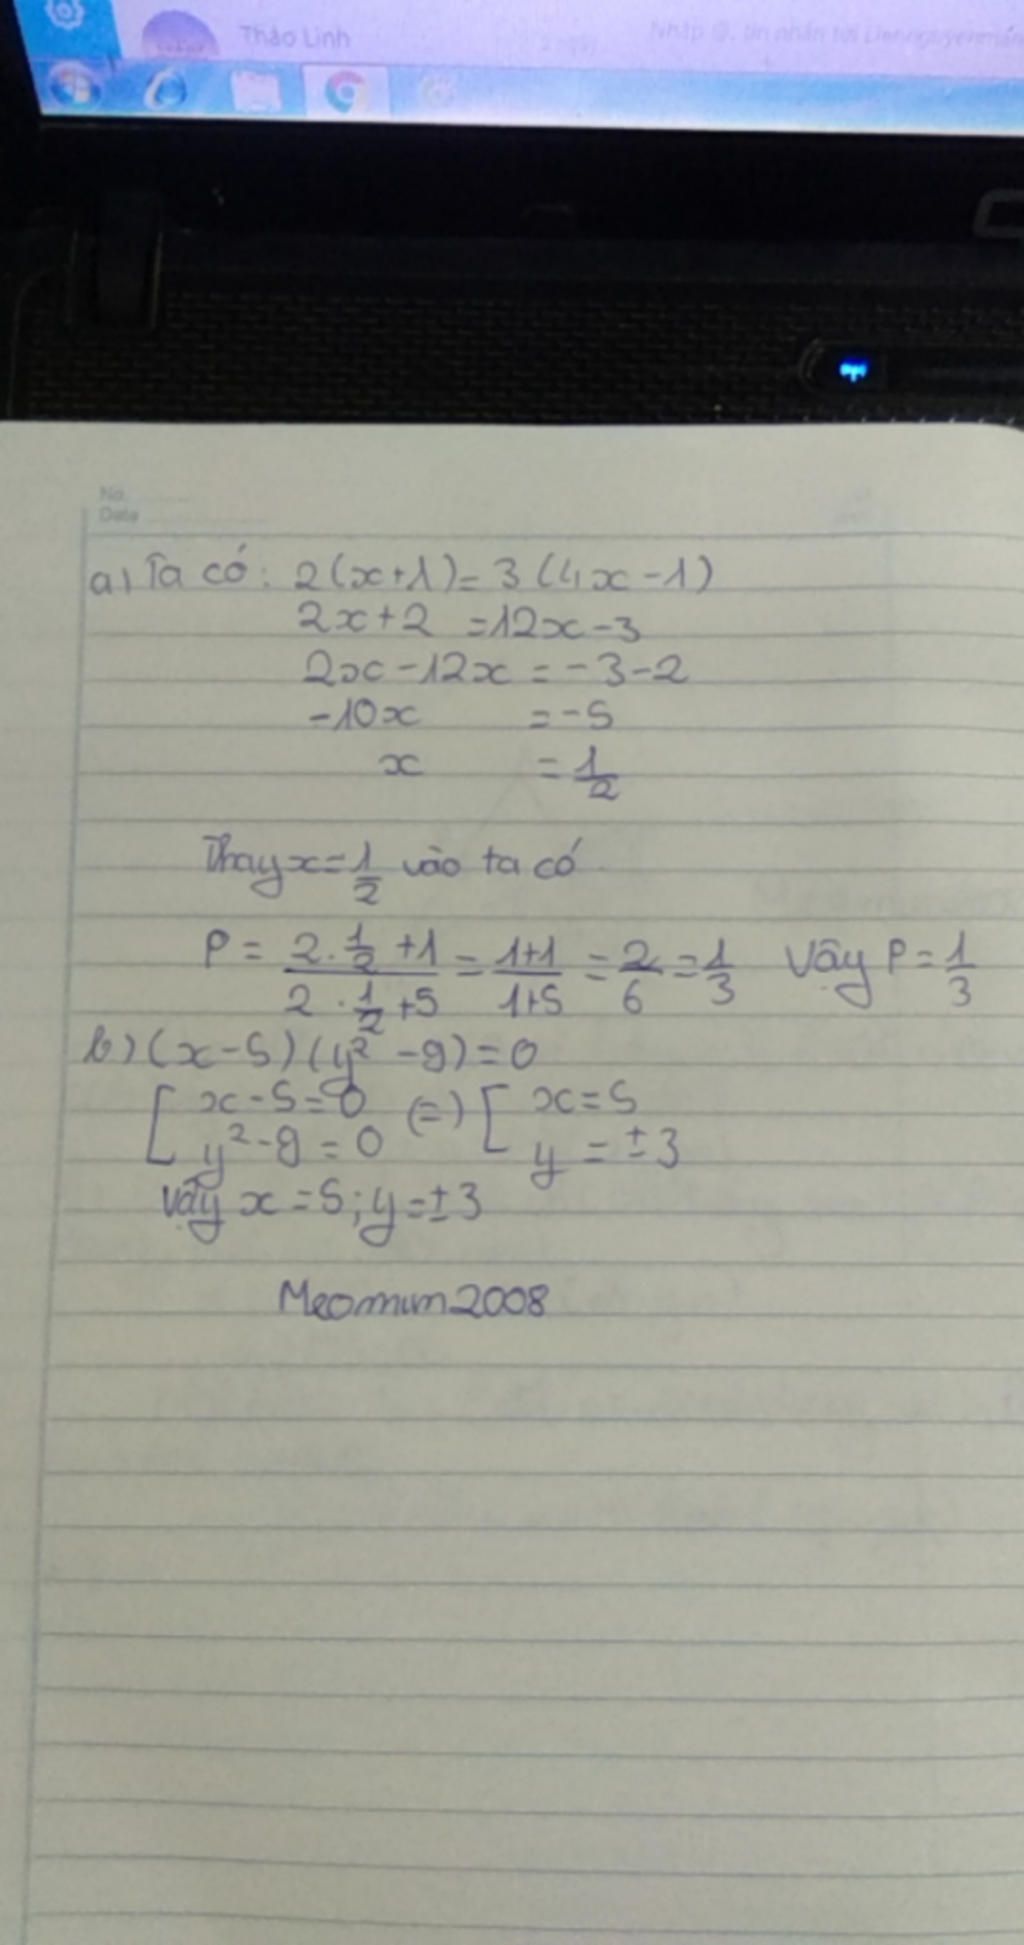 Thảo Linh
Nhập @, tin nhắn tới
No.
Date
a) Ta có: 2(x+1)=3(4x-1)
2x+2 =12x-3
2x-12x = -3-2
-10x =-5
x = 1/2
Thay x=1/2 vào ta có
P = (2.1/2+1)/(2.1/2+5) = (1+1)/(1+5) = 2/6 = 1/3 Vậy P=1/3
b) (x-5)(y²-9)=0
[ x-5=0 (=) [ x=5
y²-9=0 y=±3
Vậy x=5; y=±3
Meomum2008